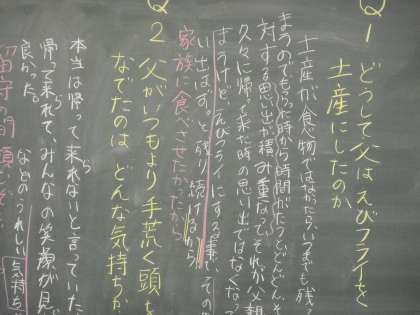 Q1 どうして父はえびフライを
土産にしたのか
土産が食物ではなかったら、いつまでも残
まうのでもらった時から時間がたつとどんどん
対する思い出が積み重なって、それが父親
久々に帰って来た時の思い出ではなくなっ
まうけど、えびフライにする事で、その
い出はずっと残り続けるから。
家族に食べさせたかったから
Q2 父がいつもより手荒く頭を
なでたのは どんな気持ちか
本当は帰って来れないと言っていた
帰って来れて、みんなの笑顔が見
良かった。
などのうれしい気持ち